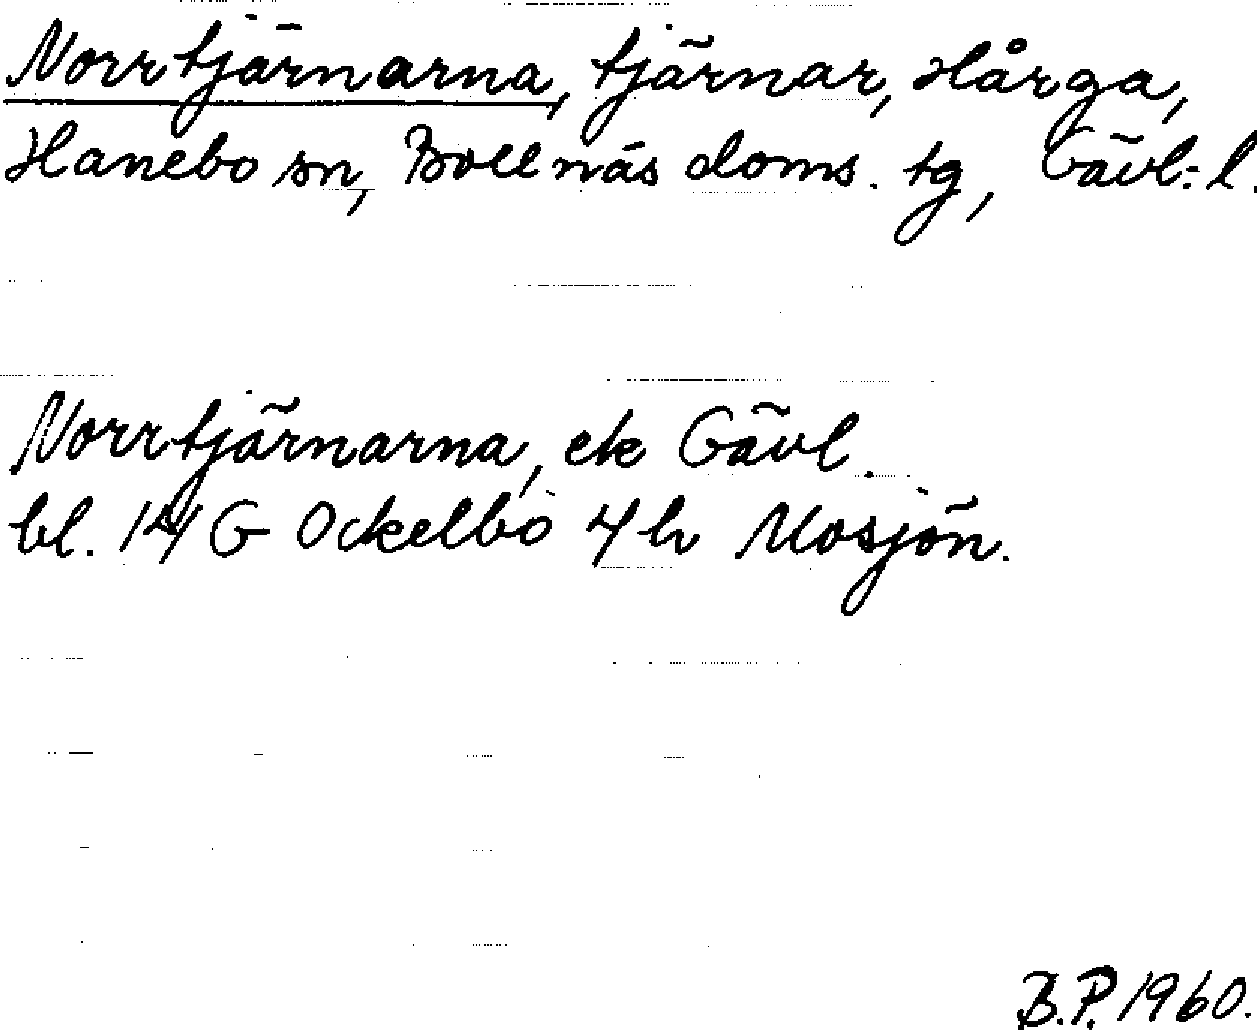 Norrtjärnarna, tjärnar, Hårga,
Hanebo sn, Bollnäs doms. tg, Gävl. l.
Norrtjärnarna, ek Gävl.
bl. 14 G Ockelbo 4 h Mosjön.
B.P. 1960.